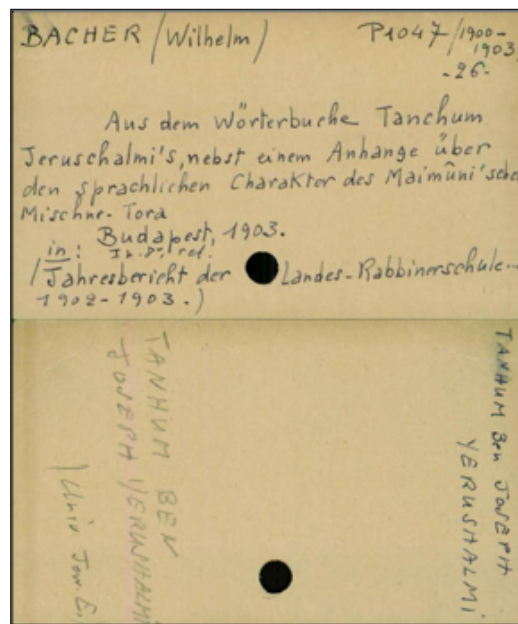 BACHER (Wilhelm)
P1047/1900-
1903
-26-
Aus dem Wörterbuche Tanchum
Jeruschalmi's, nebst einem Anhange über
den sprachlichen Charakter des Maimûni'sche
Mischne-Tora
Budapest, 1903.
in:
(Jahresbericht der Landes-Rabbinerschule...
1902-1903.)
TANHUM BEN
JOSEPH YERUSHALMI
(Univ Jew. E.
TANHUM Ben JOSEPH
YERUSHALMI